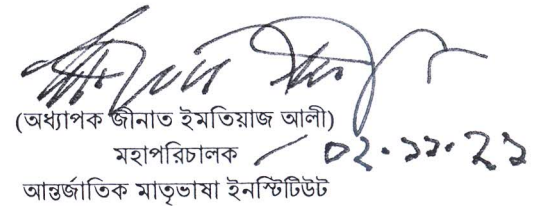 (অধ্যাপক জীনাত ইমতিয়াজ আলী)
মহাপরিচালক ০২.১১.২১
আন্তর্জাতিক মাতৃভাষা ইনস্টিটিউট